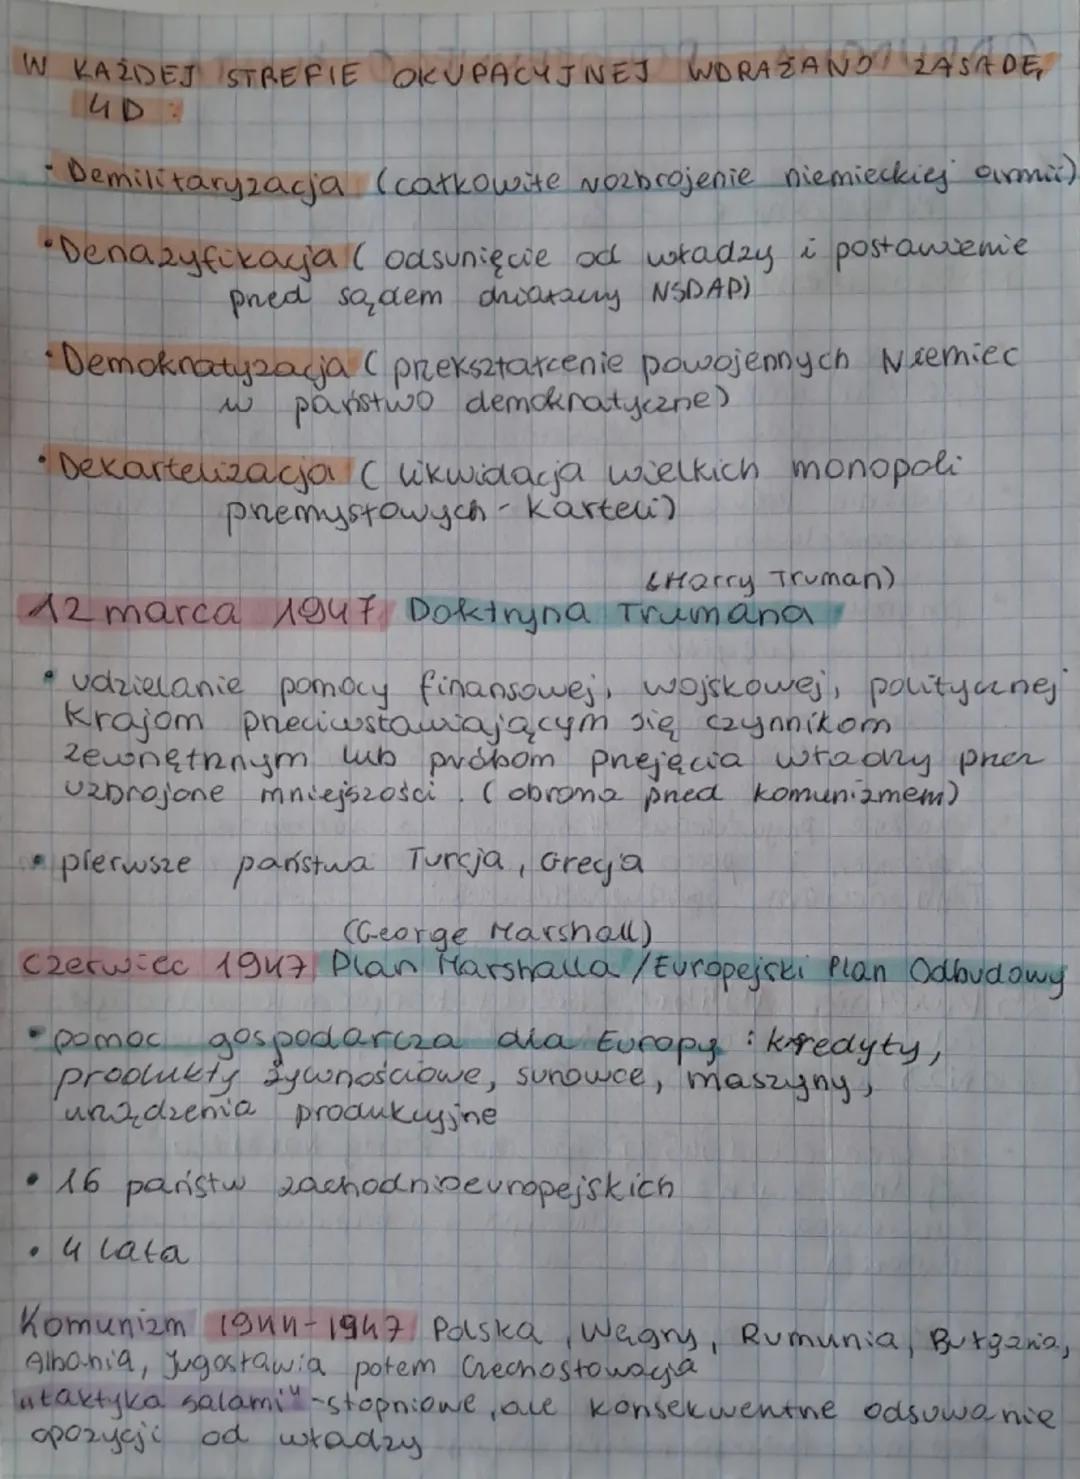 W KAŻDEJ STREFIE OKUPACYJNEJ WDRAŻANO ZASADĘ
4D:
- Demilitaryzacja (całkowite rozbrojenie niemieckiej armii)
• Denazyfikacja (odsunięcie od władzy i postawienie
przed sądem działaczy NSDAP)
• Demokratyzacja (przekształcenie powojennych Niemiec
w państwo demokratyczne)
• Dekartelizacja (likwidacja wielkich monopoli
przemysłowych - karteli)
(Harry Truman)
12 marca 1947 Doktryna Trumana
• udzielanie pomocy finansowej, wojskowej, politycznej
krajom przeciwstawiającym się czynnikom
zewnętrznym lub próbom przejęcia władzy przez
uzbrojone mniejszości. (obrona przed komunizmem)
• pierwsze państwa Turcja, Grecja
(George Marshall)
Czerwiec 1947 Plan Marshalla / Europejski Plan Odbudowy
• pomoc gospodarcza dla Europy: kredyty,
produkty żywnościowe, surowce, maszyny,
urządzenia produkcyjne
• 16 państw zachodnioeuropejskich
• 4 lata
Komunizm 1944-1947 Polska, Węgry, Rumunia, Bułgaria,
Albania, Jugosławia potem Czechosłowacja
"taktyka salami" - stopniowe, ale konsekwentne odsuwanie
opozycji od władzy